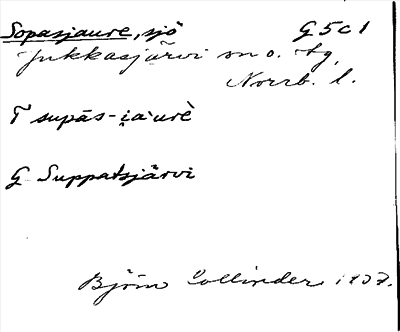 Sopasjaure, sjö G 5 c 1
Jukkasjärvi sn o. tg,
Norrb. l.
T supås-i̯a·urè
G Suppatsjärvi
Björn Collinder 1937.